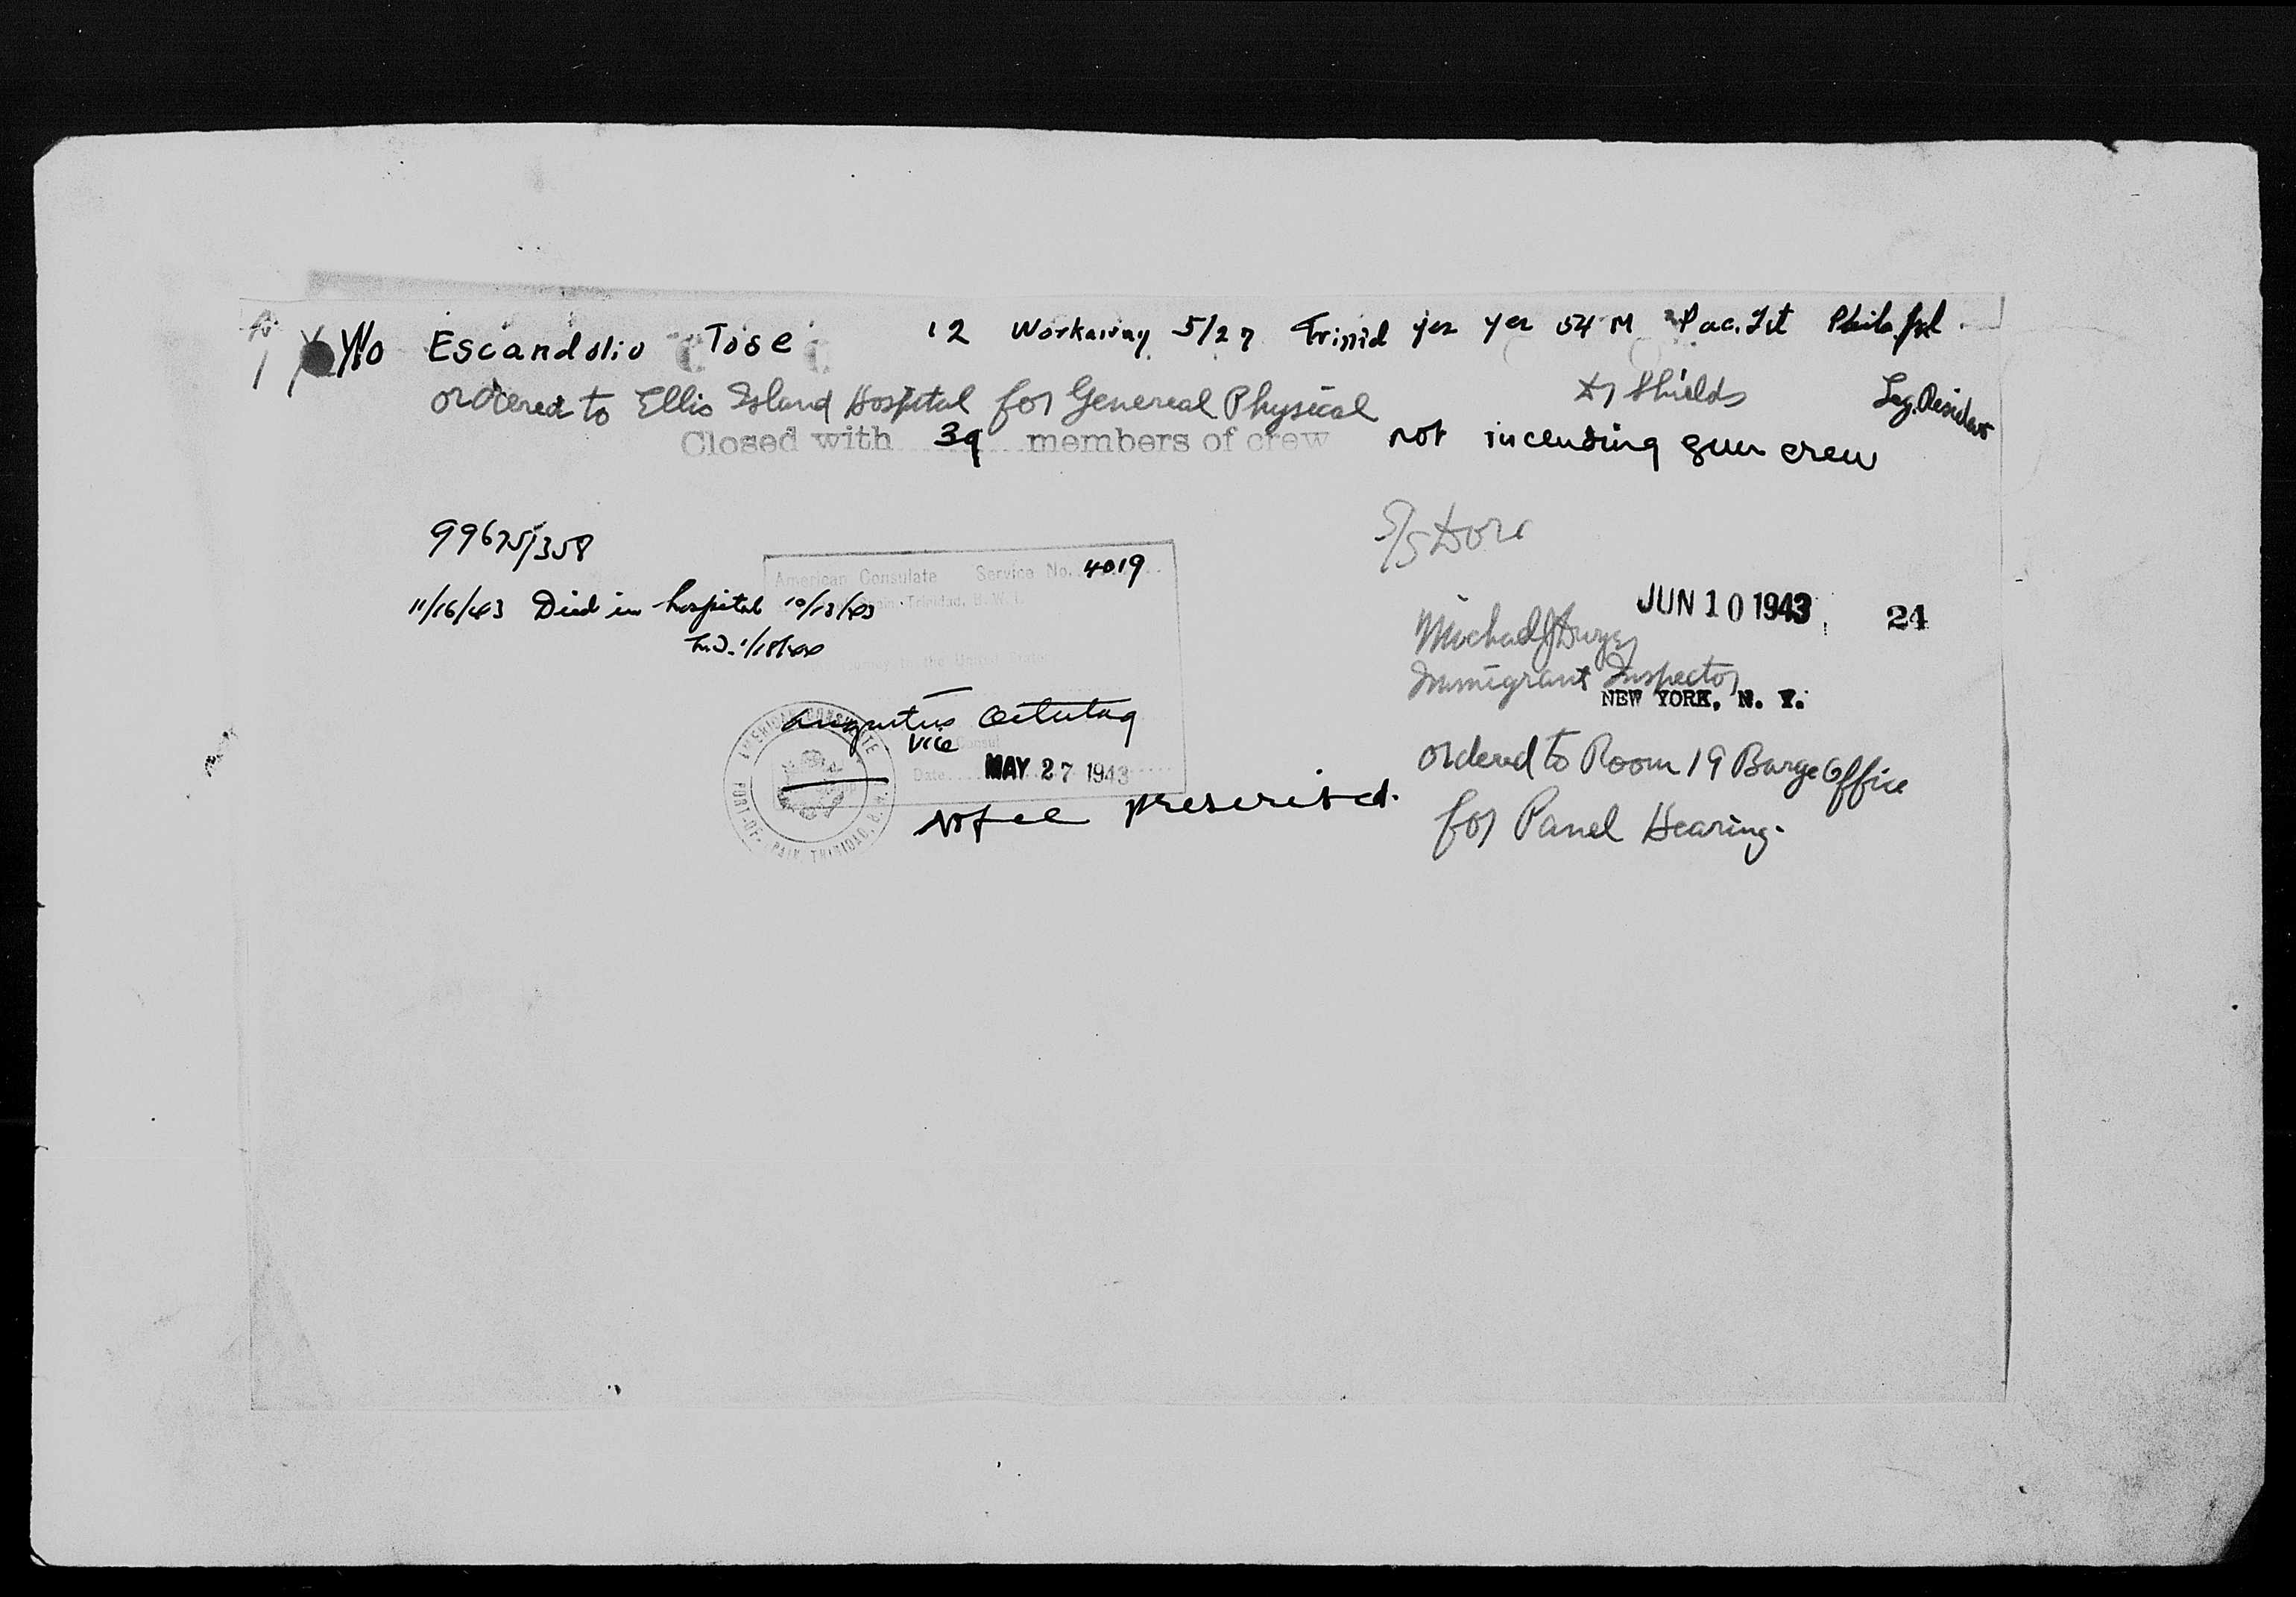 40 Escandolio Jose 12 Workaway 5/27 Trinid yes yes 54 M Pac. Ist Phila. Isl.
ordered to Ellis Island Hospital for Genereal Physical Dr Shields Leg. Resident
Closed with 39 members of crew not including gun crew
99675/358
S/S Dorr
American Consulate Service No. 4019
Trinidad, B.W.I.
11/16/43 Died in hospital 10/13/43
JUN 10 1943 24
Michael J Dwyer
1/18/44
Immigrant Inspector
NEW YORK, N. Y.
Augustus
Vice Consul
Date MAY 27 1943
AMERICAN CONSULATE
PORT-OF-SPAIN, TRINIDAD, B.W.I.
No fee prescribed.
ordered to Room 19 Barge Office
for Panel Hearing.